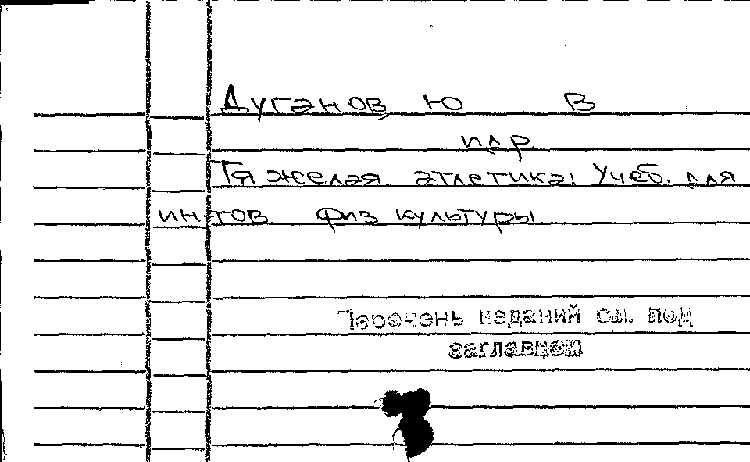 Дуганов Ю В
и др
Тяжелая атлетика: Учеб. для
ин-тов физ культуры
Перечень изданий см. под
заглавием